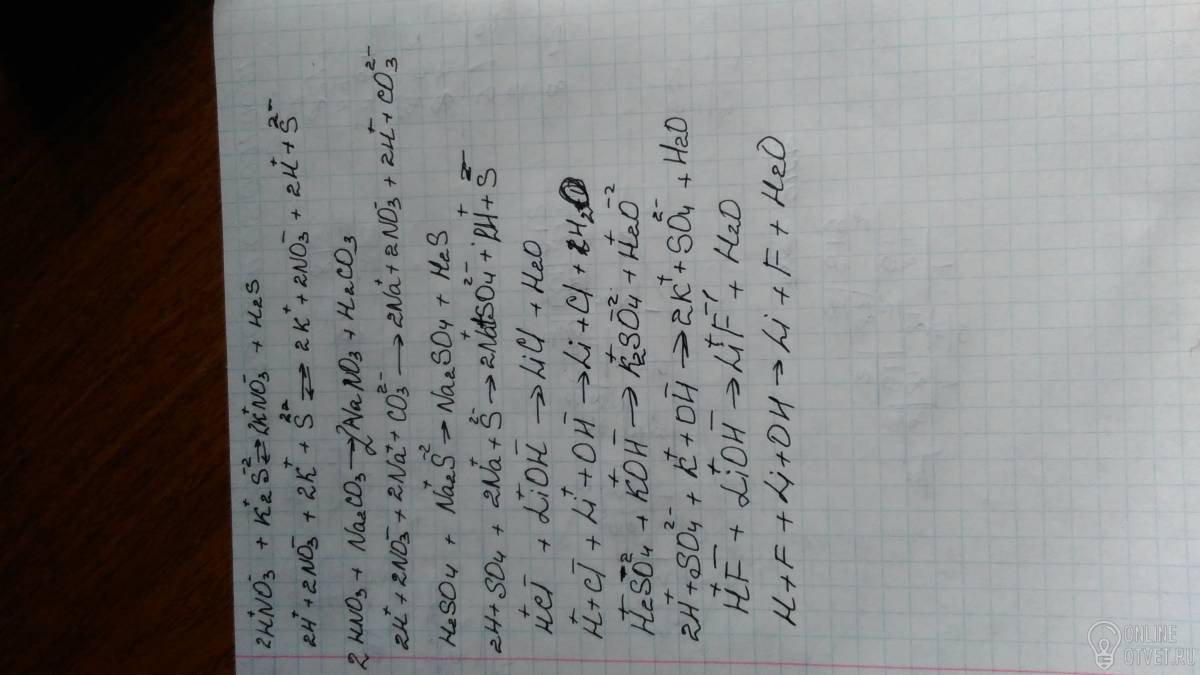 2H⁺NO₃⁻ + K₂⁺S⁻² ⇄ 2K⁺NO₃⁻ + H₂S
2H⁺ + 2NO₃⁻ + 2K⁺ + S²⁻ ⇄ 2K⁺ + 2NO₃⁻ + 2H⁺ + S²⁻
2HNO₃ + Na₂CO₃ → 2NaNO₃ + H₂CO₃
2H⁺ + 2NO₃⁻ + 2Na⁺ + CO₃²⁻ → 2Na⁺ + 2NO₃⁻ + 2H⁺ + CO₃²⁻
H₂SO₄ + Na₂⁺S⁻² → Na₂SO₄ + H₂S
2H + SO₄ + 2Na⁺ + S²⁻ → 2Na⁺ SO₄²⁻ + 2H⁺ + S²⁻
H⁺Cl⁻ + Li⁺OH⁻ → LiCl + H₂O
H⁺ + Cl⁻ + Li⁺ + OH⁻ → Li + Cl + H₂O
H₂⁺SO₄⁻² + K⁺OH⁻ → K₂⁺SO₄⁻² + H₂⁺O⁻²
2H⁺ + SO₄²⁻ + K⁺ + OH⁻ → 2K⁺ + SO₄²⁻ + H₂O
H⁺F⁻ + Li⁺OH⁻ → Li⁺F⁻¹ + H₂O
H + F + Li + OH → Li + F + H₂O
ONLINE
OTVET.RU